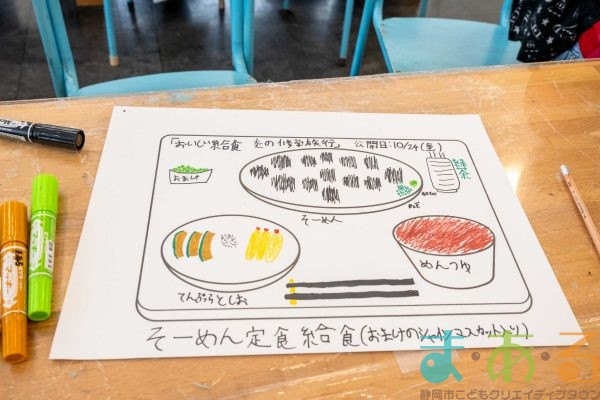 「おいしい給食 炎の修学旅行」 公開日:10/24(金)
おまけ
緑茶
そーめん
てんぷらとしお
めんつゆ
そーめん定食給食(おまけのシャインマスカット入り)
ま・あ・る
静岡市こどもクリエイティブタウン